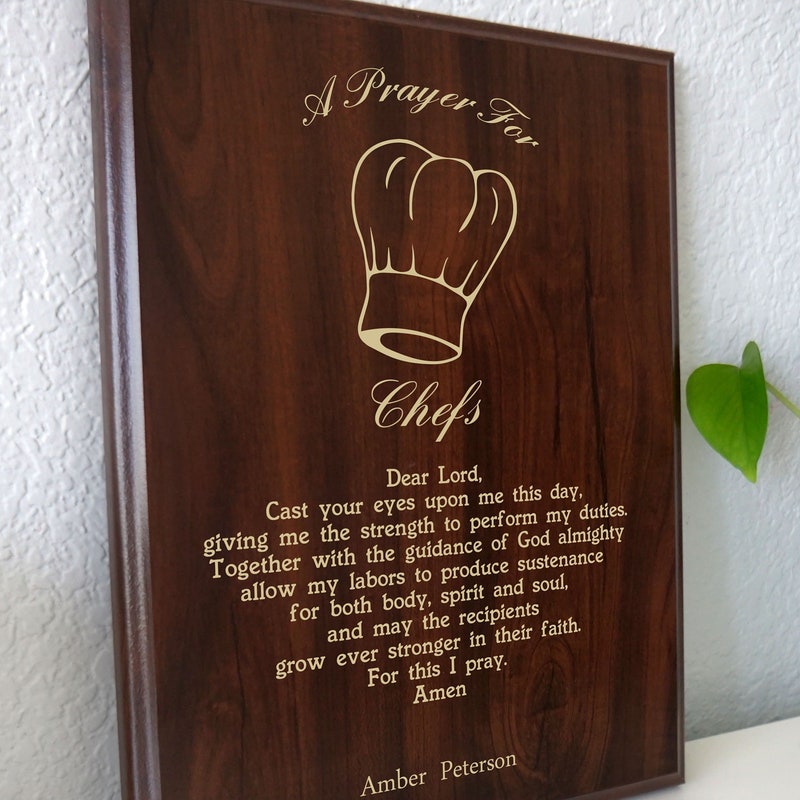 A Prayer For
Chefs
Dear Lord,
Cast your eyes upon me this day,
giving me the strength to perform my duties.
Together with the guidance of God almighty
allow my labors to produce sustenance
for both body, spirit and soul,
and may the recipients
grow ever stronger in their faith.
For this I pray.
Amen
Amber Peterson